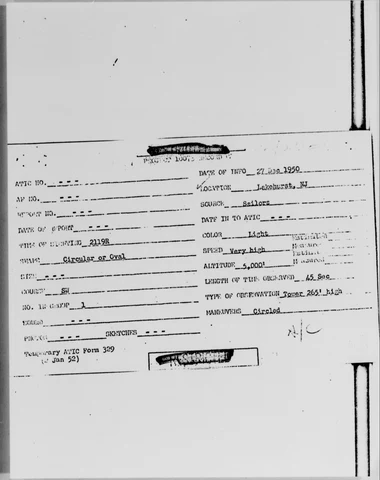 PROJECT 10073 DOCUMENT
ATIC NO. - - -
AF NO. - - -
REPORT NO. - - -
DATE OF REPORT - - -
TIME OF SIGHTING 2119R
SHAPE Circular or Oval
SIZE - - -
COURSE
NO. IN GROUP 1
SOUND - - -
PHOTOS - - - SKETCHES - - -
Temporary ATIC Form 329
(2 Jan 52)
DATE OF INFO 27 Dec 1950
LOCATION Lakehurst, NJ
SOURCE Sailors
DATE IN TO ATIC - - -
COLOR Light
SPEED Very high
ALTITUDE 5,000'
LENGTH OF TIME OBSERVED 45 Sec
TYPE OF OBSERVATION Tower 265' high
MANEUVERS Circled
A/C